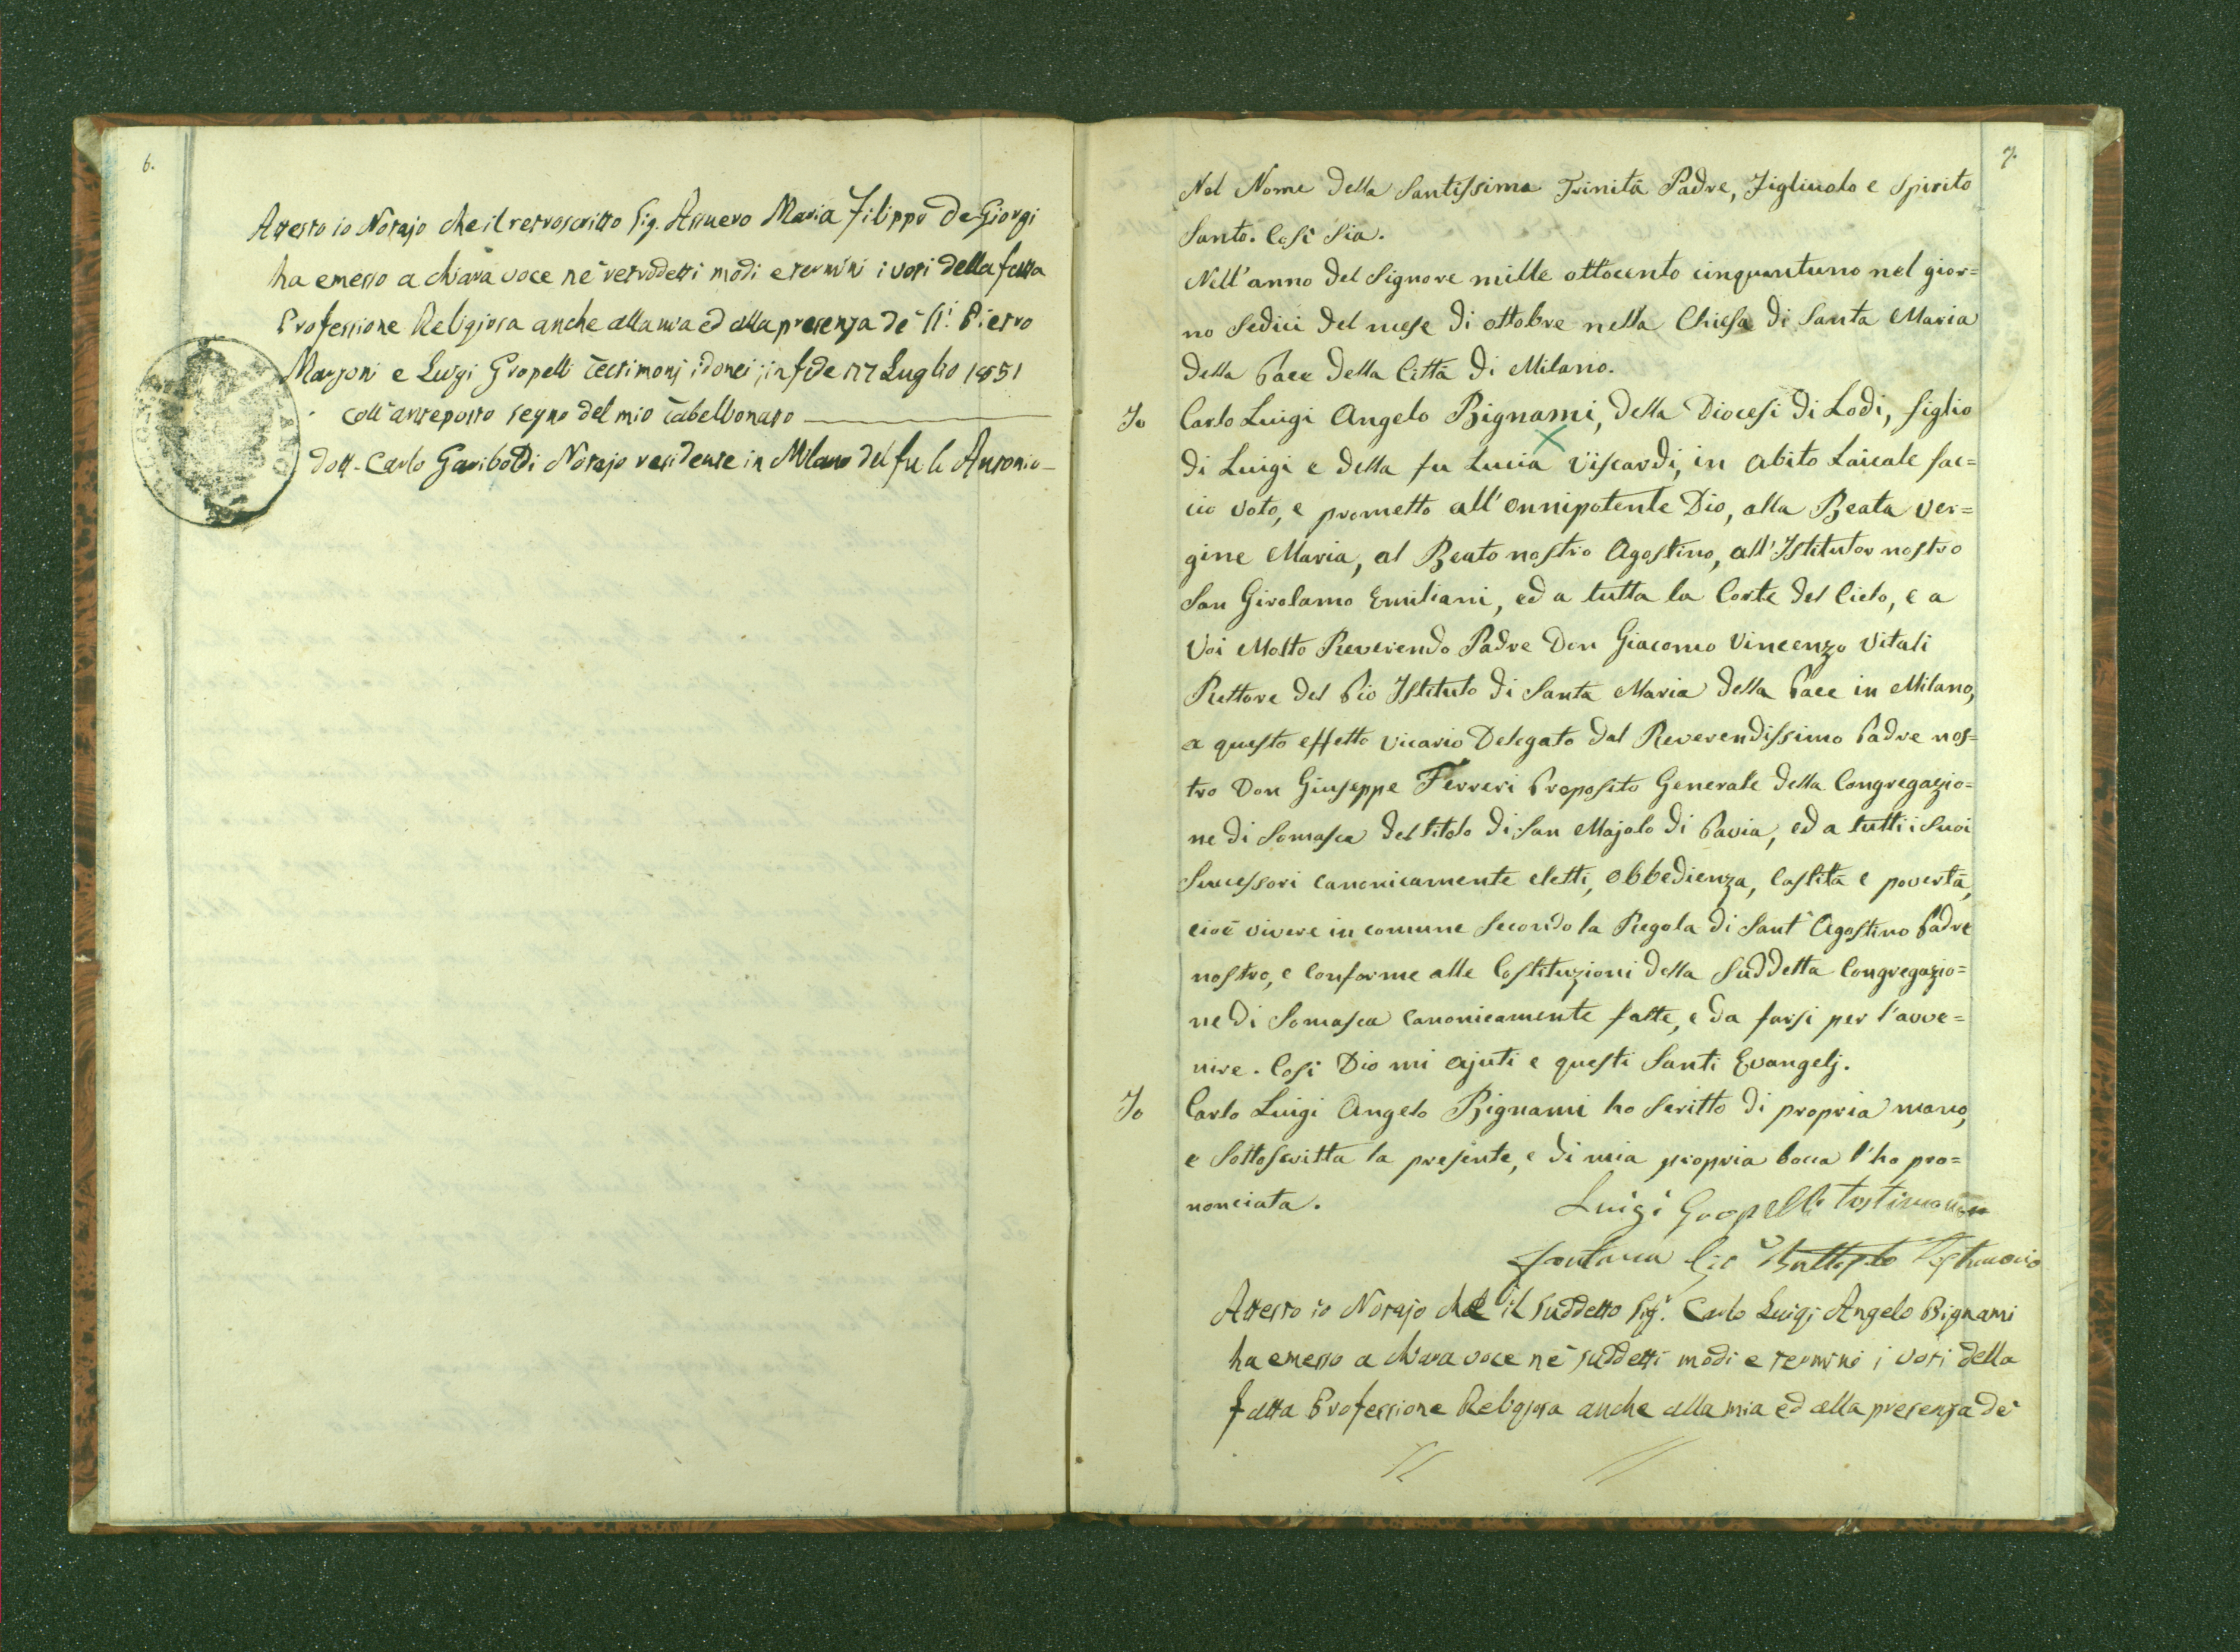 6.
Attesto io Notajo che il retroscritto Sig. Assuero Maria Filippo De Giorgi
ha emesso a chiara voce ne' retrodetti modi e termini i voti della fatta
Professione Religiosa anche alla mia ed alla presenza de' SS.i Pietro
Marzoni e Luigi Gropelli testimonj idonei; in fede 17 Luglio 1851
coll' anteposto segno del mio Tabellionato
Dott. Carlo Gariboldi Notajo residente in Milano del fu Antonio
7.
Nel Nome della Santissima Trinità Padre, Figliuolo e Spirito
Santo. Così Sia.
Nell'anno del Signore mille ottocento cinquantuno nel gior=
no Sedici del mese di ottobre nella Chiesa di Santa Maria
della Pace della Città di Milano.
Io Carlo Luigi Angelo Bignami, della Diocesi di Lodi, figlio
di Luigi e della fu Lucia Viscardi, in abito Laicale fac=
cio voto, e prometto all'Onnipotente Dio, alla Beata Ver=
gine Maria, al Beato nostro Agostino, all'Istitutor nostro
San Girolamo Emiliani, ed a tutta la Corte del Cielo, e a
Voi Molto Reverendo Padre Don Giacomo Vincenzo Vitali
Rettore del Pio Istituto di Santa Maria della Pace in Milano,
a questo effetto Vicario Delegato dal Reverendissimo Padre nos=
tro Don Giuseppe Ferreri Proposito Generale della Congregazio=
ne di Somasca del titolo di San Majolo di Pavia, ed a tutti i Suoi
Successori canonicamente eletti, obbedienza, Castità e povertà,
cioè vivere in comune secondo la Regola di Sant'Agostino Padre
nostro, e conforme alle Costituzioni della Suddetta Congregazio=
ne di Somasca canonicamente fatte, e da farsi per l'avve=
nire. Così Dio mi ajuti e questi Santi Evangelj.
Io Carlo Luigi Angelo Bignami ho scritto di propria mano,
e Sottoscritta la presente, e di mia propria bocca l'ho pro=
nonciata.
Luigi Gropelli testimonio
Fontana Gio Battista Testimonio
Attesto io Notajo che il suddetto Sig.r Carlo Luigi Angelo Bignami
ha emesso a chiara voce ne' suddetti modi e termini i voti della
fatta Professione Religiosa anche alla mia ed alla presenza de'